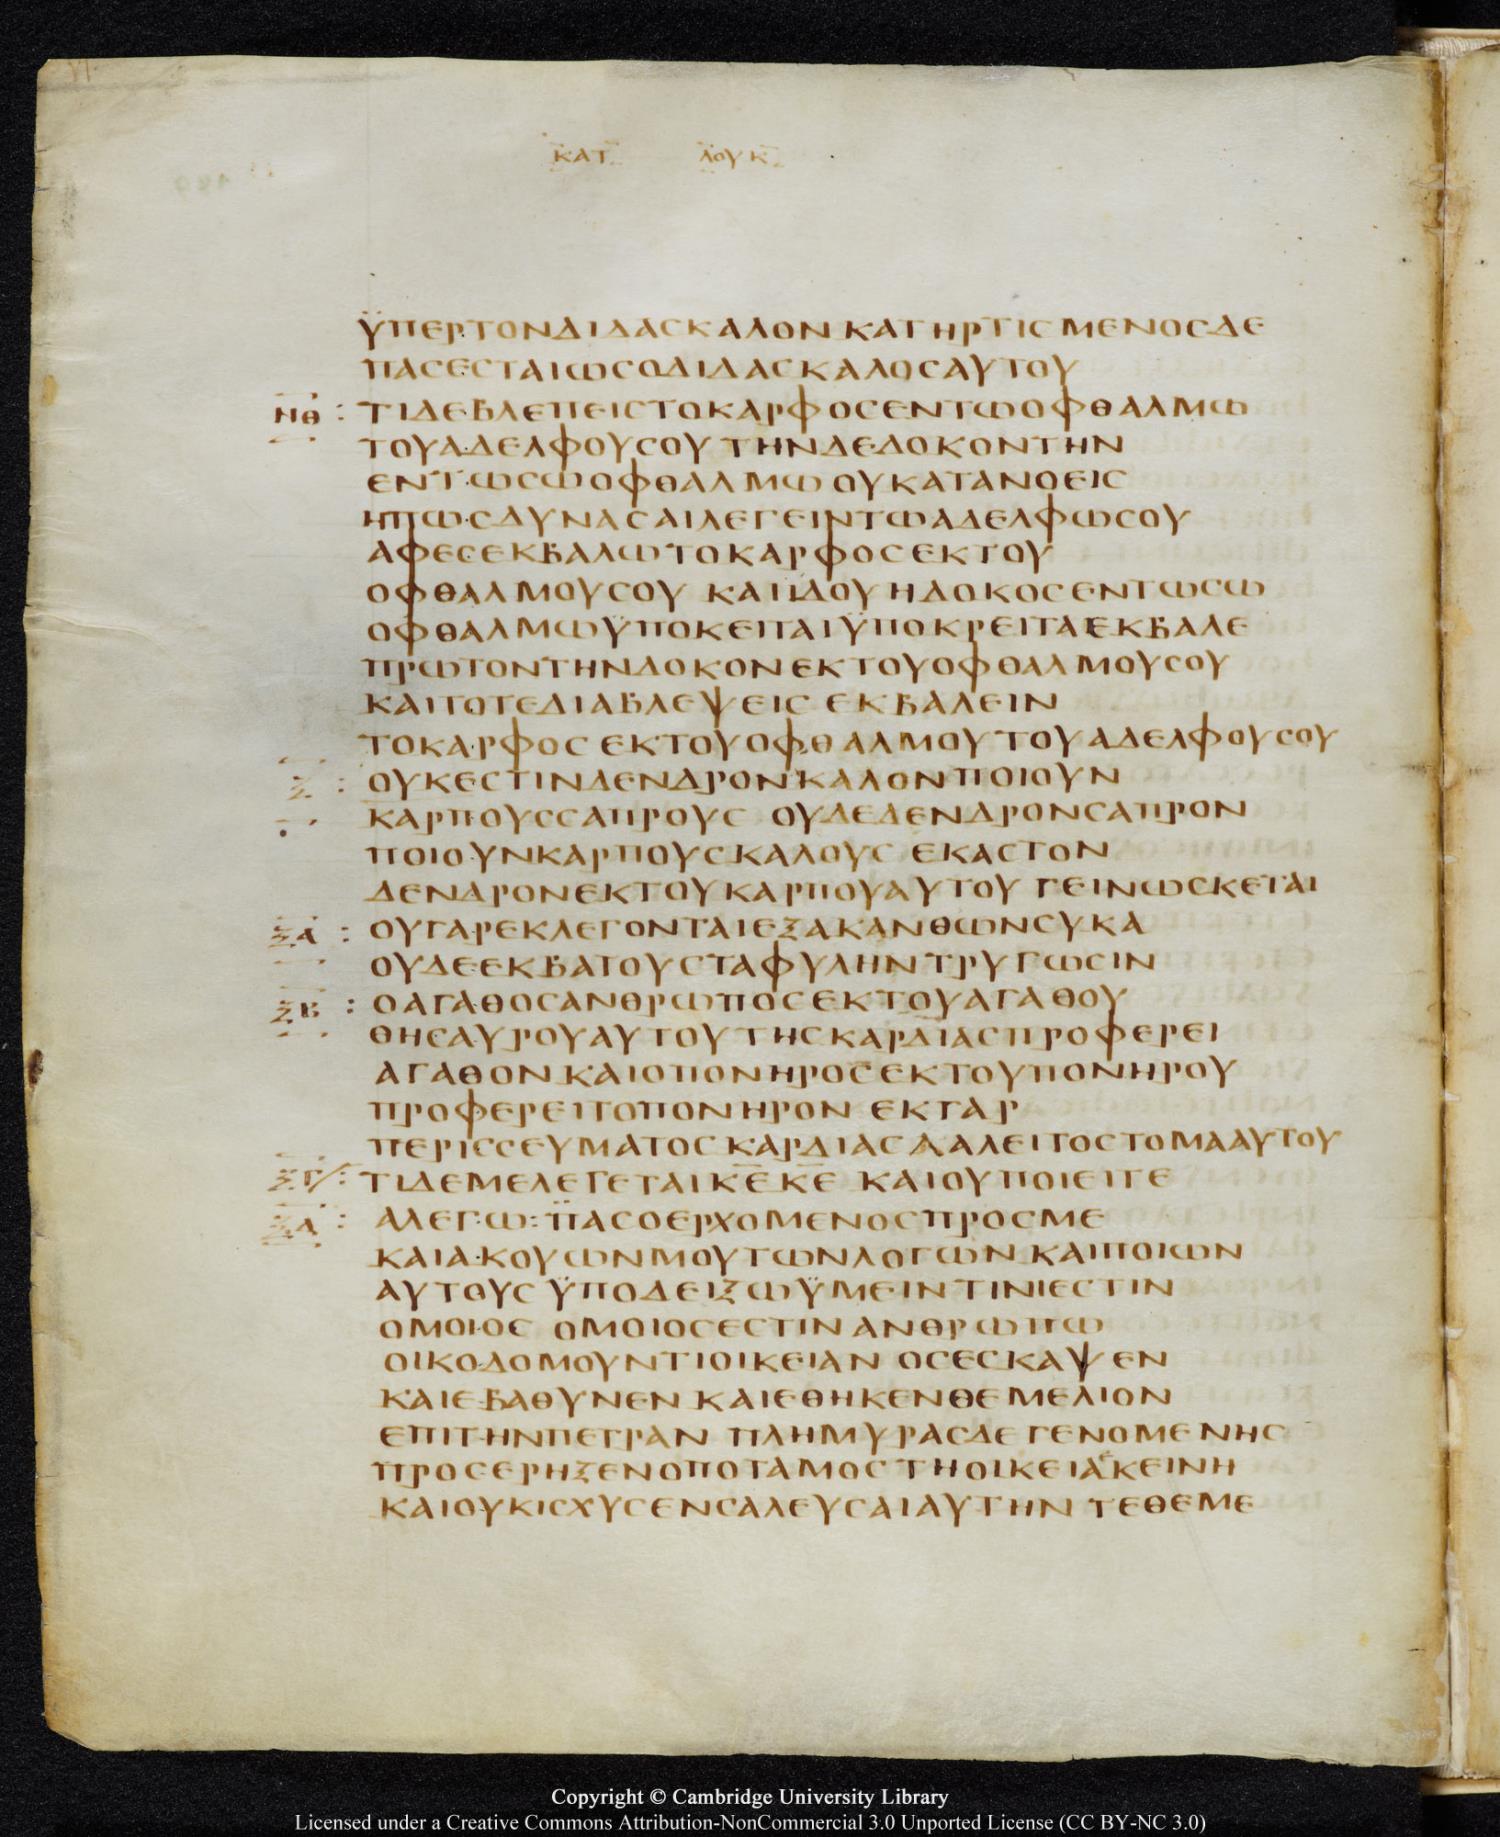 ΚΑΤ ΛΟΥΚ
ΫΠΕΡΤΟΝΔΙΔΑСΚΑΛΟΝ ΚΑΤΗΡΤΙСΜΕΝΟСΔΕ
ΠΑСΕСΤΑΙΩСΟΔΙΔΑСΚΑΛΟСΑΥΤΟΥ
ΝΘ : ΤΙΔΕΒΛΕΠΕΙСΤΟΚΑΡΦΟСΕΝΤΩΟΦΘΑΛΜΩ
ΤΟΥΑΔΕΛΦΟΥСΟΥ ΤΗΝΔΕΔΟΚΟΝΤΗΝ
ΕΝΤΩСΩΟΦΘΑΛΜΩ ΟΥΚΑΤΑΝΟΕΙС
ΗΠΩСΔΥΝΑСΑΙΛΕΓΕΙΝΤΩΑΔΕΛΦΩСΟΥ
ΑΦΕСΕΚΒΑΛΩΤΟΚΑΡΦΟСΕΚΤΟΥ
ΟΦΘΑΛΜΟΥСΟΥ ΚΑΙΙΔΟΥΗΔΟΚΟСΕΝΤΩСΩ
ΟΦΘΑΛΜΩΫΠΟΚΕΙΤΑΙΫΠΟΚΡΕΙΤΑΕΚΒΑΛΕ
ΠΡΩΤΟΝΤΗΝΔΟΚΟΝΕΚΤΟΥΟΦΘΑΛΜΟΥСΟΥ
ΚΑΙΤΟΤΕΔΙΑΒΛΕΨΕΙС ΕΚΒΑΛΕΙΝ
ΤΟΚΑΡΦΟС ΕΚΤΟΥΟΦΘΑΛΜΟΥΤΟΥΑΔΕΛΦΟΥСΟΥ
Ξ : ΟΥΚΕСΤΙΝΔΕΝΔΡΟΝΚΑΛΟΝΠΟΙΟΥΝ
ΚΑΡΠΟΥССΑΠΡΟΥС ΟΥΔΕΔΕΝΔΡΟΝСΑΠΡΟΝ
ΠΟΙΟΥΝΚΑΡΠΟΥСΚΑΛΟΥС ΕΚΑСΤΟΝ
ΔΕΝΔΡΟΝΕΚΤΟΥΚΑΡΠΟΥΑΥΤΟΥ ΓΕΙΝΩСΚΕΤΑΙ
ΞΑ : ΟΥΓΑΡΕΚΛΕΓΟΝΤΑΙΕΞΑΚΑΝΘΩΝСΥΚΑ
ΟΥΔΕΕΚΒΑΤΟΥСΤΑΦΥΛΗΝΤΡΥΓΩСΙΝ
ΞΒ : ΟΑΓΑΘΟСΑΝΘΡΩΠΟСΕΚΤΟΥΑΓΑΘΟΥ
ΘΗСΑΥΡΟΥΑΥΤΟΥΤΗСΚΑΡΔΙΑСΠΡΟΦΕΡΕΙ
ΑΓΑΘΟΝΚΑΙΟΠΟΝΗΡΟСΕΚΤΟΥΠΟΝΗΡΟΥ
ΠΡΟΦΕΡΕΙΤΟΠΟΝΗΡΟΝ ΕΚΓΑΡ
ΠΕΡΙССΕΥΜΑΤΟСΚΑΡΔΙΑСΛΑΛΕΙΤΟСΤΟΜΑΑΥΤΟΥ
ΞΓ : ΤΙΔΕΜΕΛΕΓΕΤΑΙΚ̅Ε̅Κ̅Ε̅ ΚΑΙΟΥΠΟΙΕΙΤΕ
ΞΔ : ΑΛΕΓΩ : ΠΑСΟΕΡΧΟΜΕΝΟСΠΡΟСΜΕ
ΚΑΙΑΚΟΥΩΝΜΟΥΤΩΝΛΟΓΩΝ ΚΑΙΠΟΙΩΝ
ΑΥΤΟΥС ΫΠΟΔΕΙΞΩΫΜΕΙΝΤΙΝΙΕСΤΙΝ
ΟΜΟΙΟС ΟΜΟΙΟСΕСΤΙΝΑΝΘΡΩΠΩ
ΟΙΚΟΔΟΜΟΥΝΤΙΟΙΚΕΙΑΝ ΟСΕСΚΑΨΕΝ
ΚΑΙΕΒΑΘΥΝΕΝ ΚΑΙΕΘΗΚΕΝΘΕΜΕΛΙΟΝ
ΕΠΙΤΗΝΠΕΤΡΑΝ ΠΛΗΜΥΡΑСΔΕΓΕΝΟΜΕΝΗС
ΠΡΟСΕΡΗΞΕΝΟΠΟΤΑΜΟС ΤΗΟΙΚΕΙΑΕΚΕΙΝΗ
ΚΑΙΟΥΚΙСΧΥСΕΝСΑΛΕΥСΑΙΑΥΤΗΝ ΤΕΘΕΜΕ
Copyright © Cambridge University Library
Licensed under a Creative Commons Attribution-NonCommercial 3.0 Unported License (CC BY-NC 3.0)